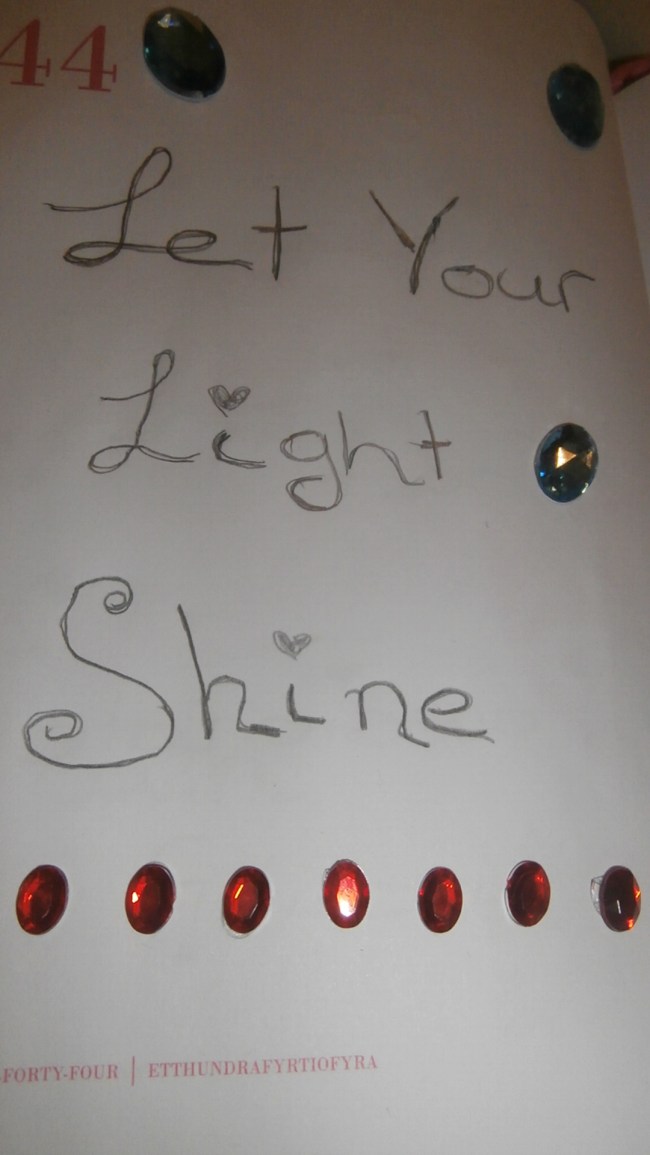 44
Let Your
Light
Shine
-FORTY-FOUR | ETTHUNDRAFYRTIOFYRA